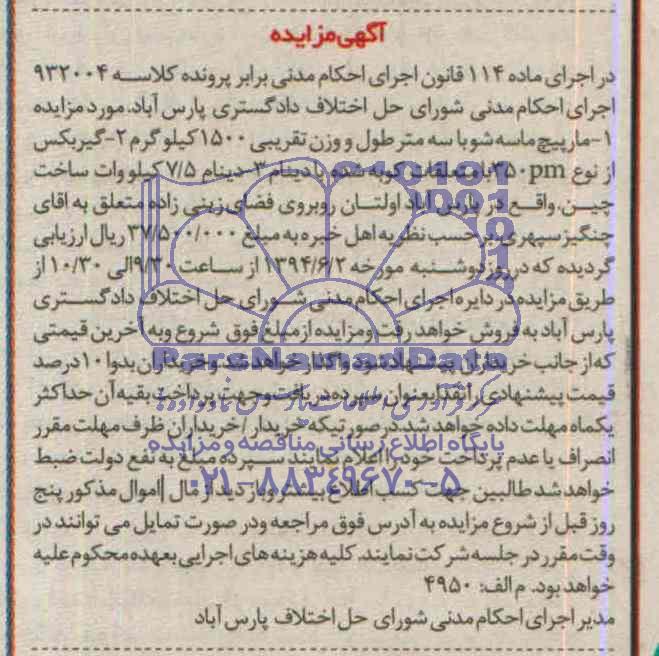 آگهی مزایده
در اجرای ماده ۱۱۴ قانون اجرای احکام مدنی برابر پرونده کلاسه ۹۳۲۰۰۴
اجرای احکام مدنی شورای حل اختلاف دادگستری پارس آباد، مورد مزایده
۱-مارپیچ ماسه شو با سه متر طول و وزن تقریبی ۱۵۰۰ کیلو گرم ۲-گیربکس
از نوع ۳۵۰pm با متعلقات کوبه شده با دینام ۳-دینام ۷/۵ کیلو وات ساخت
چین، واقع در پارس آباد اولتان روبروی فضای زینی زاده متعلق به اقای
چنگیز سپهری، بر حسب نظریه اهل خبره به مبلغ ۳۷/۵۰۰/۰۰۰ ریال ارزیابی
گردیده که در روز دوشنبه مورخه ۱۳۹۴/۶/۲ از ساعت ۹/۳۰ الی ۱۰/۳۰ از
طریق مزایده در دایره اجرای احکام مدنی شورای حل اختلاف دادگستری
پارس آباد به فروش خواهد رفت ومزایده از مبلغ فوق شروع وبه آخرین قیمتی
که از جانب خریداران پیشنهاد شود واگذار خواهد شد وخریداران بدوا ۱۰ درصد
قیمت پیشنهادی را نقدا بعنوان سپرده دریافت وجهت پرداخت بقیه آن حداکثر
یکماه مهلت داده خواهد شد. در صورتیکه خریدار /خریداران ظرف مهلت مقرر
انصراف یا عدم پرداخت خود را اعلام نمایند سپرده مبلغ به نفع دولت ضبط
خواهد شد طالبین جهت کسب اطلاع بیشتر وبازدید از مال |اموال مذکور پنج
روز قبل از شروع مزایده به آدرس فوق مراجعه ودر صورت تمایل می توانند در
وقت مقرر در جلسه شرکت نمایند. کلیه هزینه های اجرایی بعهده محکوم علیه
خواهد بود. م الف: ۴۹۵۰
مدیر اجرای احکام مدنی شورای حل اختلاف پارس آباد
ParsNamadData
پایگاه اطلاع رسانی مناقصه و مزایده
۰۲۱-۸۸۳۴۹۶۷۰-۵